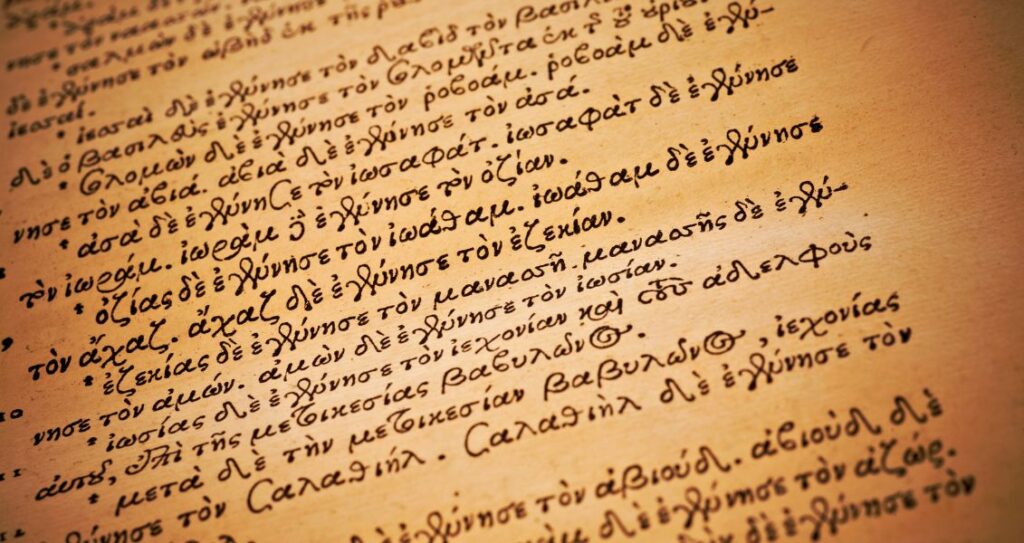 νησε τὸν
* σαλμὼν δὲ
δὲ ἐγέννησε τὸν ὠβὴδ ἐκ τῆς
ἰεσσαί.
* ἰεσσαὶ δὲ ἐγέννησε τὸν δαβὶδ τὸν
δὲ ὁ βασιλεὺς ἐγέννησε τὸν σολομῶντα ἐκ τῆς τοῦ
* σολομὼν δὲ ἐγέννησε τὸν ῥοβοάμ. ῥοβοὰμ δὲ ἐγέν-
νησε τὸν ἀβιά. ἀβιὰ δὲ ἐγέννησε τὸν ἀσά.
* ἀσὰ δὲ ἐγέννησε τὸν ἰωσαφάτ. ἰωσαφὰτ δὲ ἐγέννησε
τὸν ἰωράμ. ἰωρὰμ δὲ ἐγέννησε τὸν ὀζίαν.
* ὀζίας δὲ ἐγέννησε τὸν ἰωάθαμ. ἰωάθαμ δὲ ἐγέννησε
τὸν ἄχαζ. ἄχαζ δὲ ἐγέννησε τὸν ἐζεκίαν.
10 * ἐζεκίας δὲ ἐγέννησε τὸν μανασσῆ. μανασσῆς δὲ ἐγέν-
νησε τὸν ἀμών. ἀμὼν δὲ ἐγέννησε τὸν ἰωσίαν.
11 * ἰωσίας δὲ ἐγέννησε τὸν ἰεχονίαν καὶ τοὺς ἀδελφοὺς
αὐτοῦ, ἐπὶ τῆς μετοικεσίας βαβυλῶνος.
12 * μετὰ δὲ τὴν μετοικεσίαν βαβυλῶνος, ἰεχονίας
ἐγέννησε τὸν σαλαθιήλ. σαλαθιὴλ δὲ ἐγέννησε τὸν
δὲ ἐγέννησε τὸν ἀβιούδ. ἀβιοὺδ δὲ
δὲ ἐγέννησε τὸν ἀζώρ.
δὲ ἐγέννησε τὸν